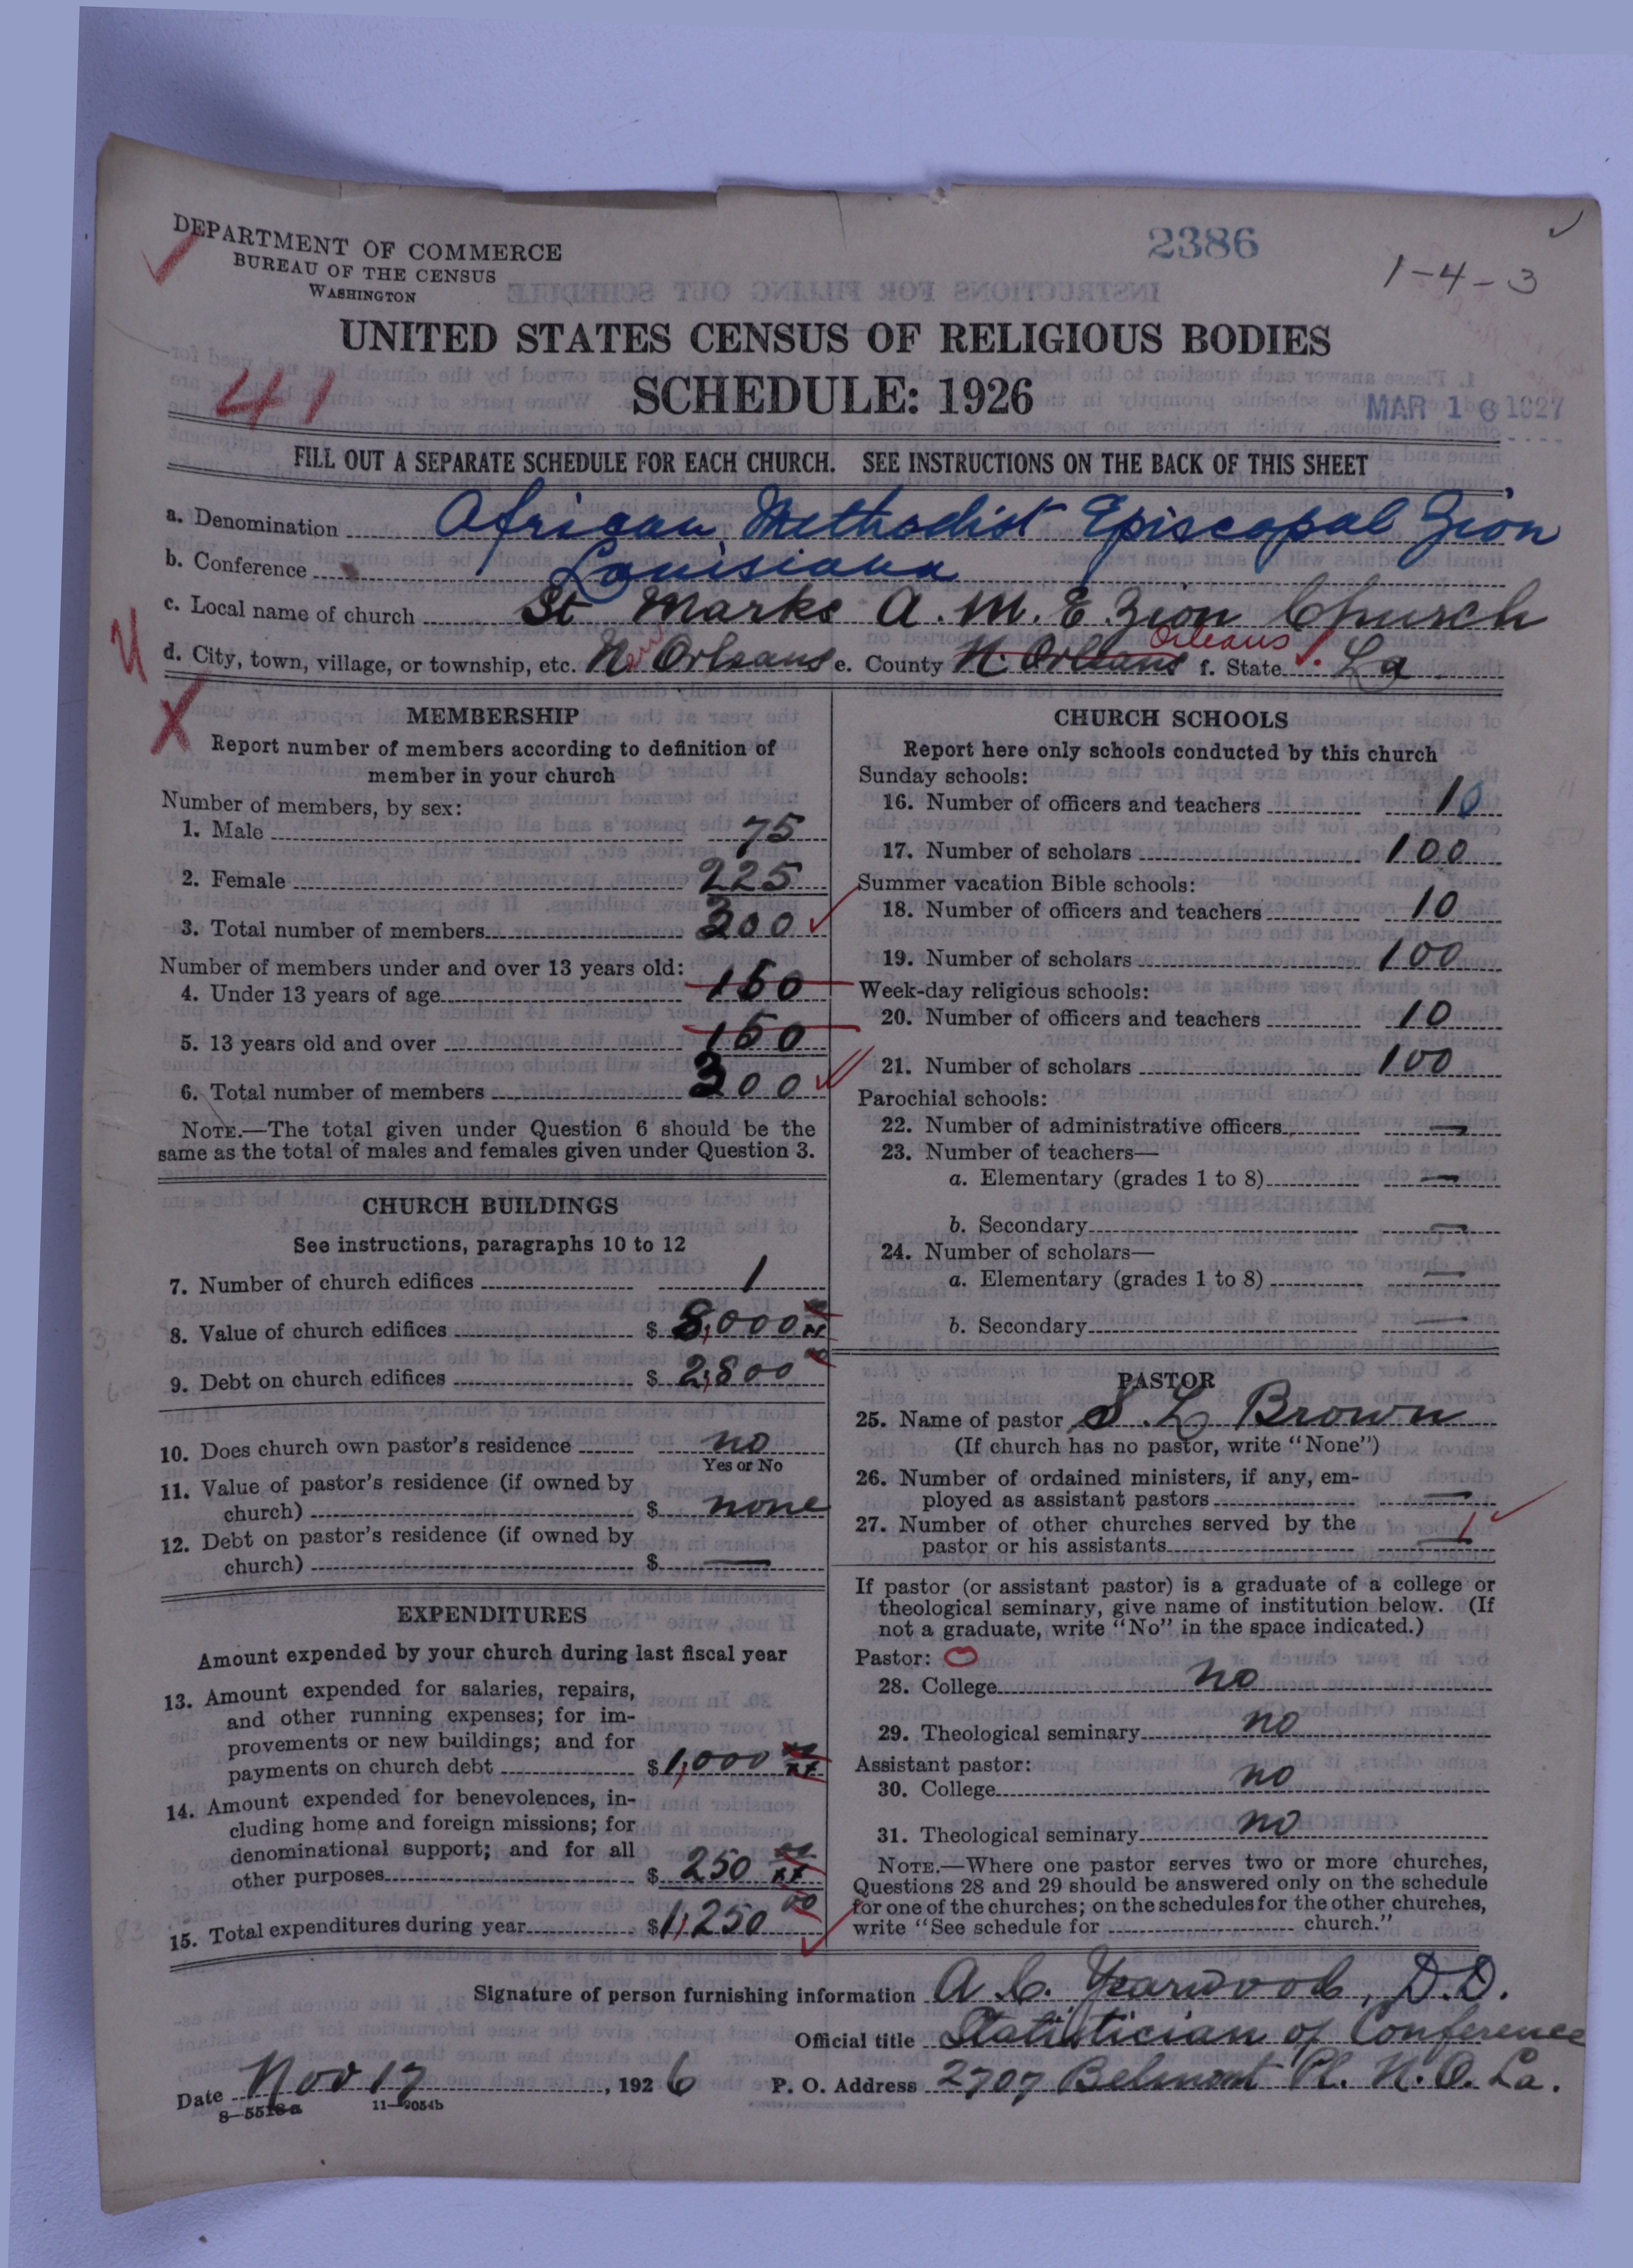 DEPARTMENT OF COMMERCE
BUREAU OF THE CENSUS
WASHINGTON
2386
1-4-3
UNITED STATES CENSUS OF RELIGIOUS BODIES
41
SCHEDULE: 1926
MAR 16 1927
FILL OUT A SEPARATE SCHEDULE FOR EACH CHURCH. SEE INSTRUCTIONS ON THE BACK OF THIS SHEET
a. Denomination African Methodist Episcopal Zion
b. Conference Louisiana
c. Local name of church St Marks A. M. E Zion Church
d. City, town, village, or township, etc. New Orleans e. County N. Orleans Orleans f. State La
MEMBERSHIP
Report number of members according to definition of
member in your church
Number of members, by sex:
1. Male 75
2. Female 225
3. Total number of members 300
Number of members under and over 13 years old:
4. Under 13 years of age 150
5. 13 years old and over 150
6. Total number of members 300
NOTE.—The total given under Question 6 should be the
same as the total of males and females given under Question 3.
CHURCH BUILDINGS
See instructions, paragraphs 10 to 12
7. Number of church edifices 1
8. Value of church edifices $ 8,000 00
9. Debt on church edifices $ 2,800 00
10. Does church own pastor's residence no
Yes or No
11. Value of pastor's residence (if owned by
church) $ none
12. Debt on pastor's residence (if owned by
church) $ —
EXPENDITURES
Amount expended by your church during last fiscal year
13. Amount expended for salaries, repairs,
and other running expenses; for im-
provements or new buildings; and for
payments on church debt $ 1,000 00
14. Amount expended for benevolences, in-
cluding home and foreign missions; for
denominational support; and for all
other purposes $ 250 00
15. Total expenditures during year $ 1,250 00
CHURCH SCHOOLS
Report here only schools conducted by this church
Sunday schools:
16. Number of officers and teachers 10
17. Number of scholars 100
Summer vacation Bible schools:
18. Number of officers and teachers 10
19. Number of scholars 100
Week-day religious schools:
20. Number of officers and teachers 10
21. Number of scholars 100
Parochial schools:
22. Number of administrative officers —
23. Number of teachers—
a. Elementary (grades 1 to 8) —
b. Secondary —
24. Number of scholars—
a. Elementary (grades 1 to 8) —
b. Secondary —
PASTOR
25. Name of pastor S. L Brown
(If church has no pastor, write "None")
26. Number of ordained ministers, if any, em-
ployed as assistant pastors —
27. Number of other churches served by the
pastor or his assistants 1
If pastor (or assistant pastor) is a graduate of a college or
theological seminary, give name of institution below. (If
not a graduate, write "No" in the space indicated.)
Pastor: 0
28. College no
29. Theological seminary no
Assistant pastor:
30. College no
31. Theological seminary no
NOTE.—Where one pastor serves two or more churches,
Questions 28 and 29 should be answered only on the schedule
for one of the churches; on the schedules for the other churches,
write "See schedule for church."
Signature of person furnishing information A. C. Yearwood, D.D.
Official title Statistician of Conference
Date Nov 17, 1926 P. O. Address 2707 Belmont Pl. N.O. La.
8-5518a 11-9054b